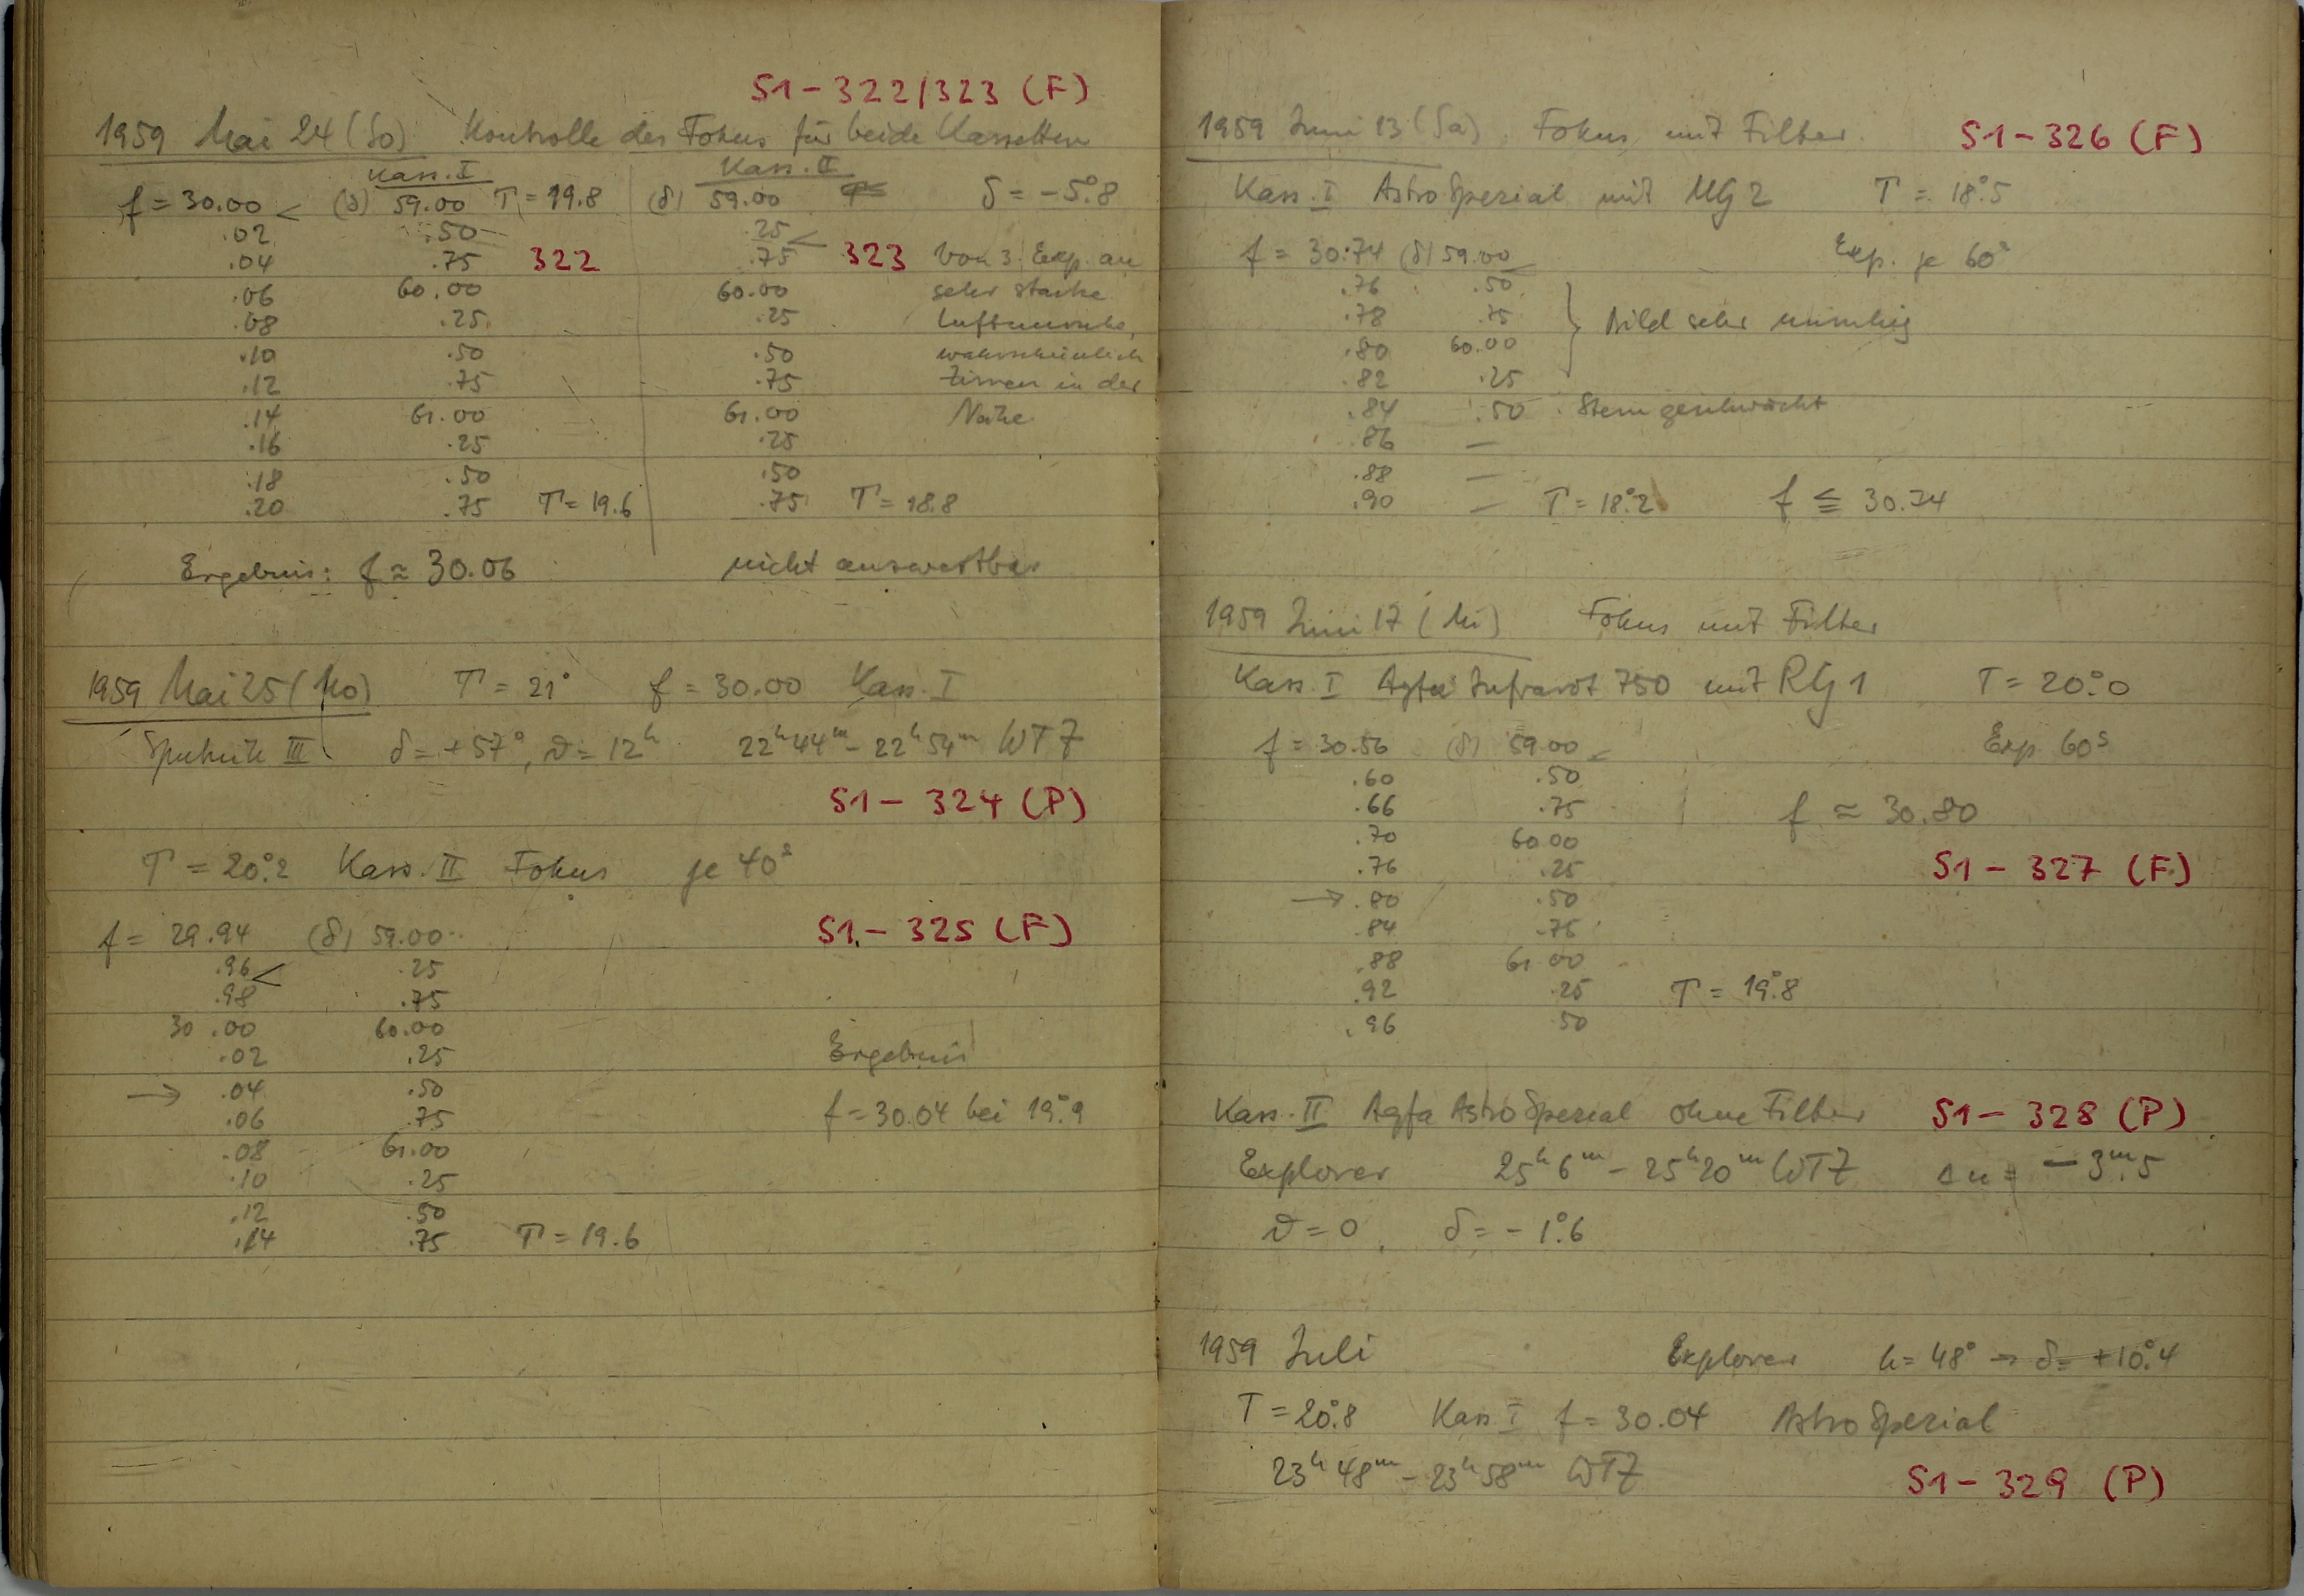 S1 - 322/323 (F)
1959 Mai 24 (So) Kontrolle des Fokus für beide Kassetten
Kass. I Kass. II
f = 30.00 < (δ) 59.00 T = 19.8 (δ) 59.00 δ = -5°.8
.02 .50 .25 <
.04 .75 322 .75 323 Von 3. Exp. an
.06 60.00 60.00 sehr starke
.08 .25 .25 Luftunruhe,
.10 .50 .50 wahrscheinlich
.12 .75 .75 Zirren in der
.14 61.00 61.00 Nähe
.16 .25 .25
.18 .50 .50
.20 .75 T = 19.6 .75 T = 18.8
Ergebnis: f ≈ 30.06 nicht auswertbar
1959 Mai 25 (Mo) T = 21° f = 30.00 Kass. I
Sputnik III δ = +57°, ϑ = 12h 22h44m - 22h54m WTZ
S1 - 324 (P)
T = 20°.2 Kass. II Fokus je 40s
f = 29.94 (δ) 59.00 S1 - 325 (F)
.96 < .25
.98 .75
30.00 60.00
.02 .25 Ergebnis
→ .04 .50
.06 .75 f = 30.04 bei 19°.9
.08 61.00
.10 .25
.12 .50
.14 .75 T = 19.6
1959 Juni 13 (Sa) Fokus mit Filter S1 - 326 (F)
Kass. I Astro Spezial mit UG 2 T = 18°.5
f = 30.74 (δ) 59.00 Exp. je 60s
.76 .50
.78 .75 } Bild sehr unruhig
.80 60.00
.82 .25
.84 .50 Stern geschwächt
.86 —
.88 —
.90 — T = 18°.2 f ≦ 30.74
1959 Juni 17 (Mi) Fokus mit Filter
Kass. I Agfa Infrarot 750 mit RG 1 T = 20°.0
f = 30.56 (δ) 59.00 < Exp 60s
.60 .50
.66 .75 f ≈ 30.80
.70 60.00
.76 .25 S1 - 327 (F)
→ .80 .50
.84 .75
.88 61.00
.92 .25 T = 19°.8
.96 .50
Kass. II Agfa Astro Spezial ohne Filter S1 - 328 (P)
Explorer 25h6m - 25h20m WTZ Δu = -3m.5
ϑ = 0, δ = -1°.6
1959 Juli Explorer h = 48° → δ = +10°.4
T = 20°.8 Kass I f = 30.04 Astro Spezial
23h48m - 23h58m WTZ S1 - 329 (P)